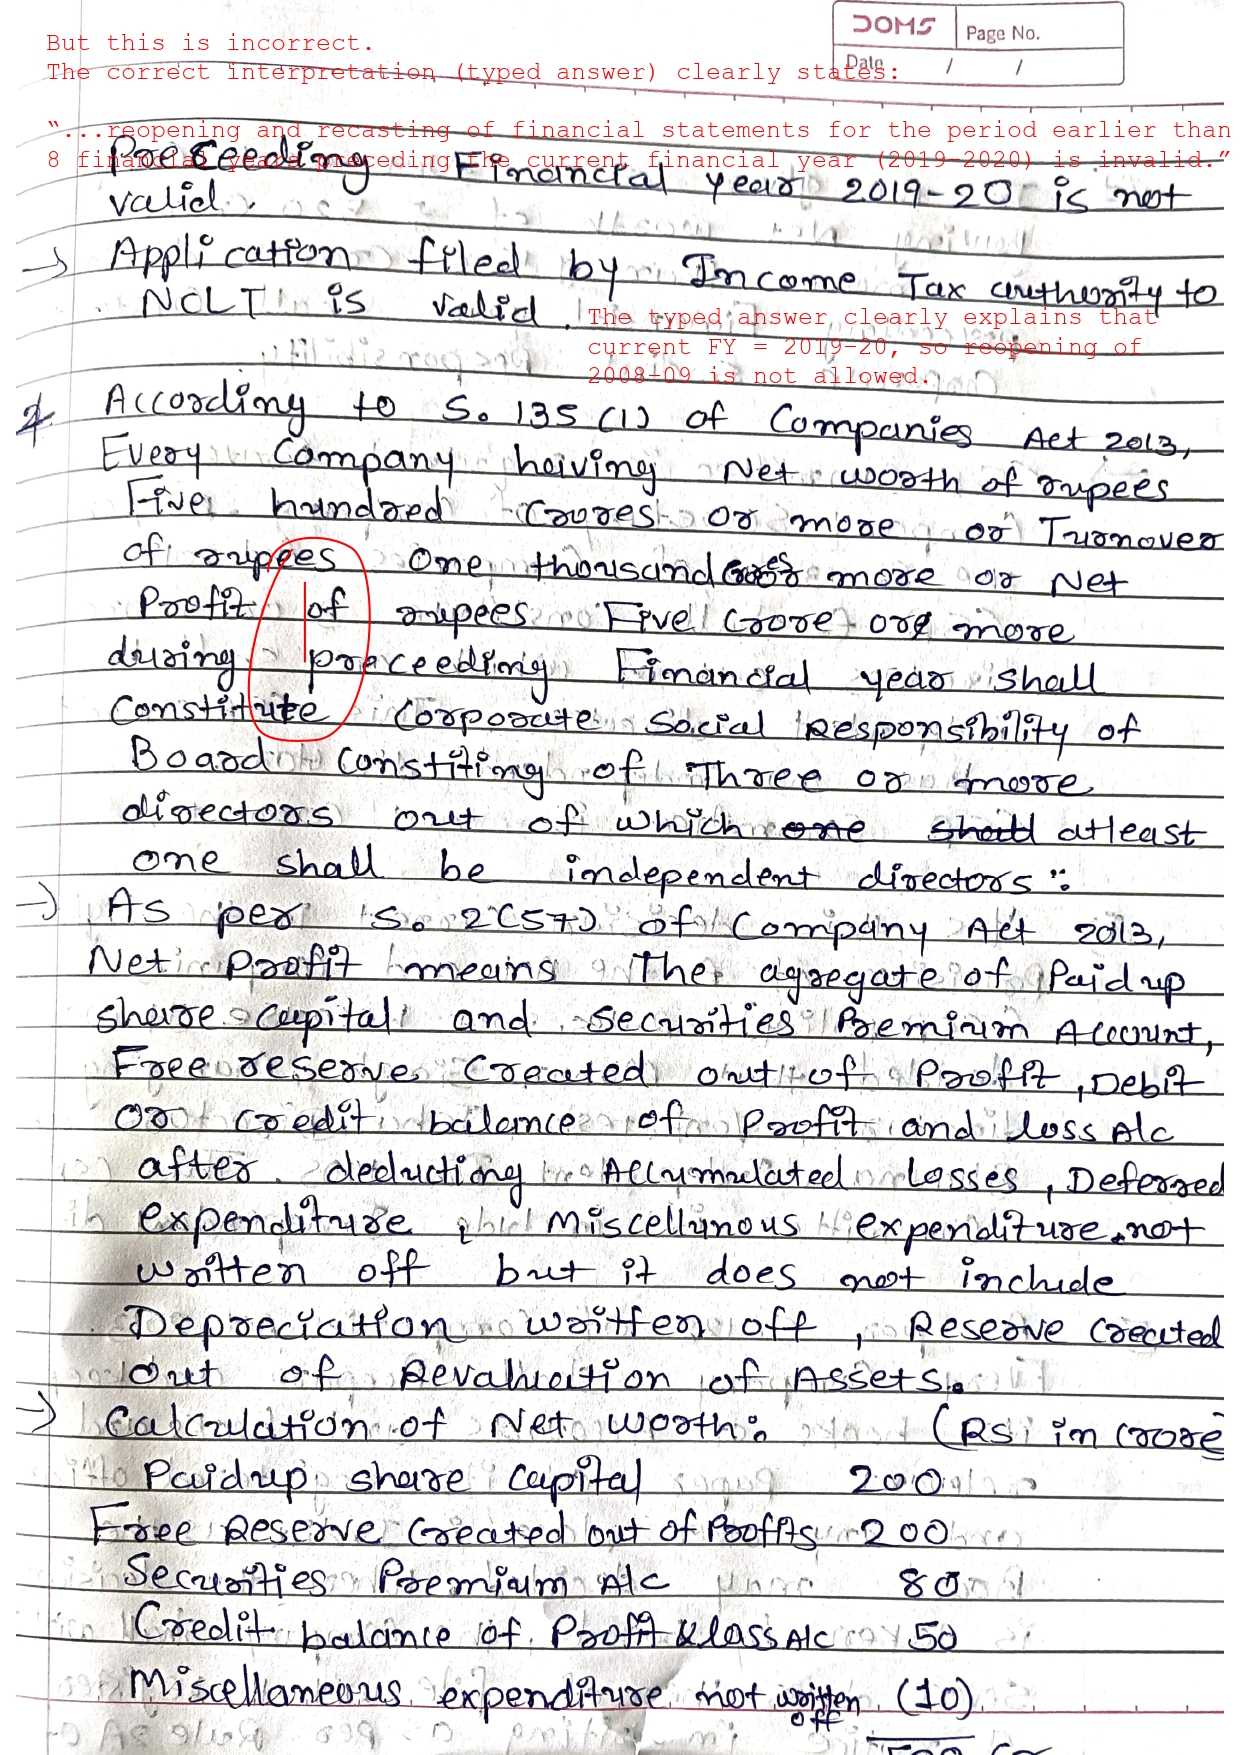 DOMS Page No.
Date / /
But this is incorrect.
The correct interpretation (typed answer) clearly states:
“...reopening and recasting of financial statements for the period earlier than
8 financial years preceding the current financial year (2019-2020) is invalid.”
Preceeding Financial year 2019-20 is not
valid.
→ Application filed by Income Tax authority to
NCLT is valid.
The typed answer clearly explains that
current FY = 2019-20, so reopening of
2008-09 is not allowed.
According to S. 135 (1) of Companies Act 2013,
Every Company having Net worth of rupees
Five hundred Crores or more or Turnover
of rupees One thousand more or Net
Profit of rupees Five Crore ore more
during preceeding Financial year shall
Constitute Corporate Social Responsibility of
Board Constiting of Three or more
directors out of which one shall atleast
one shall be independent directors :
→ As per S. 2(57) of Company Act 2013,
Net Profit means The agregate of Paid up
share capital and securities Premium Account,
Free reserve Created out of Profit, Debit
Or Credit balance of Profit and loss A/c
after deducting Accumulated Losses, Deferred
expenditure, Miscellunous expenditure not
written off but it does not include
Depreciation written off, Reserve Created
Out of Revaluation of Assets.
→ Calculation of Net Worth: (RS in Crore)
Paidup share Capital 200
Free Reserve Created out of Profits 200
Securities Premium A/C 80
Credit balance of Profit & loss A/c 50
Miscellaneous expenditure not written off (10)